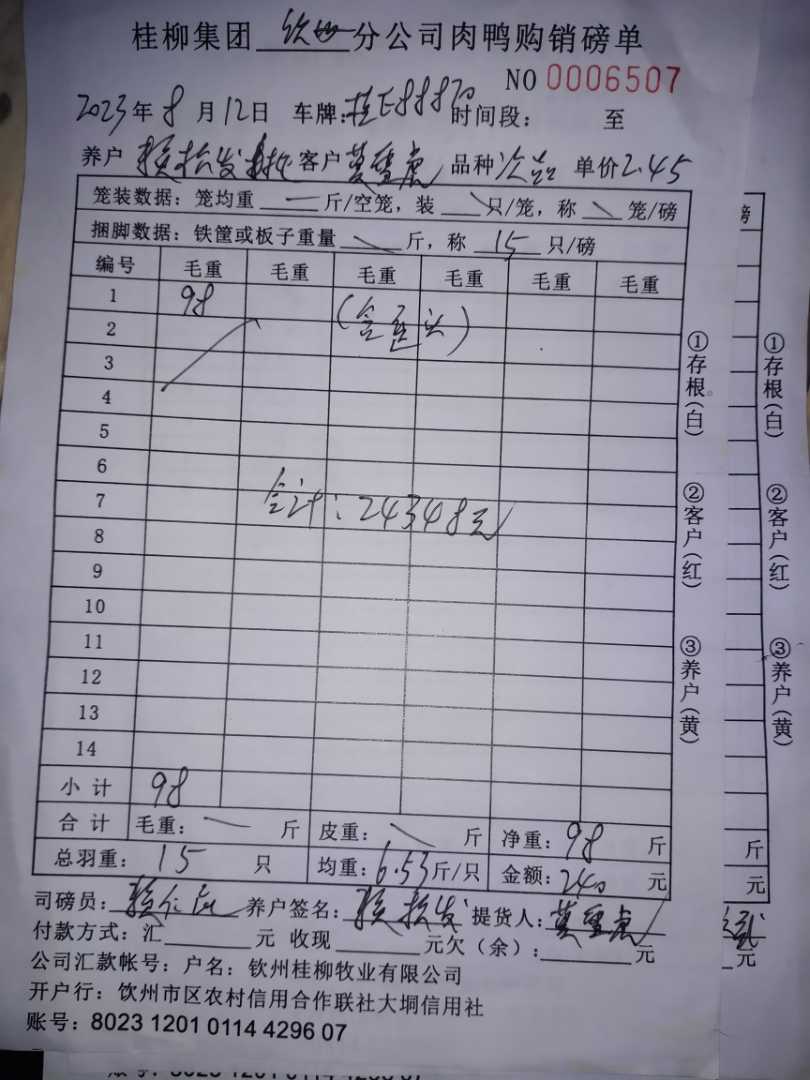 桂柳集团 钦州 分公司肉鸭购销磅单
NO 0006507
2023年8月12日 车牌:桂E88870 时间段: 至
养户 发 客户 莫 品种 次 单价2.45
笼装数据: 笼均重 一 斤/空笼, 装 \ 只/笼, 称 \ 笼/磅
捆脚数据: 铁筐或板子重量 \ 斤, 称 15 只/磅
编号 毛重 毛重 毛重 毛重 毛重 毛重
1 98
2
3
4
5
6
7
合计: 24348元
8
9
10
11
12
13
14
小计 98
合计 毛重: 一 斤 皮重: \ 斤 净重: 98 斤
总羽重: 15 只 均重: 6.53斤/只 金额: 240 元
司磅员: 养户签名: 发 提货人: 莫
付款方式: 汇 元 收现 元欠(余): 元
公司汇款帐号: 户名: 钦州桂柳牧业有限公司
开户行: 钦州市区农村信用合作联社大垌信用社
账号: 8023 1201 0114 4296 07
①存根(白)
②客户(红)
③养户(黄)
磅
①存根(白)
②客户(红)
③养户(黄)
斤
元
元